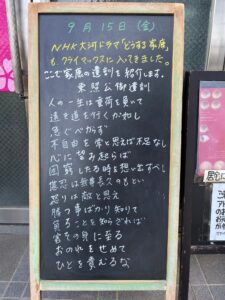 9月15日(金)
NHK大河ドラマ「どうする家康」
も クライマックスに入ってきました。
ここで家康の遺訓を紹介します。
東照公御遺訓
人の一生は重荷を負いて
遠き道を行くが如し
急ぐべからず
不自由を常と思えば不足なし
心に望み起らば
困窮したる時を思い出すべし
堪忍は無事長久のもとい
怒りは敵と思え
勝つ事ばかり知りて
負くることを知らざれば
害その身に至る
おのれをせめて
ひとを責むるな